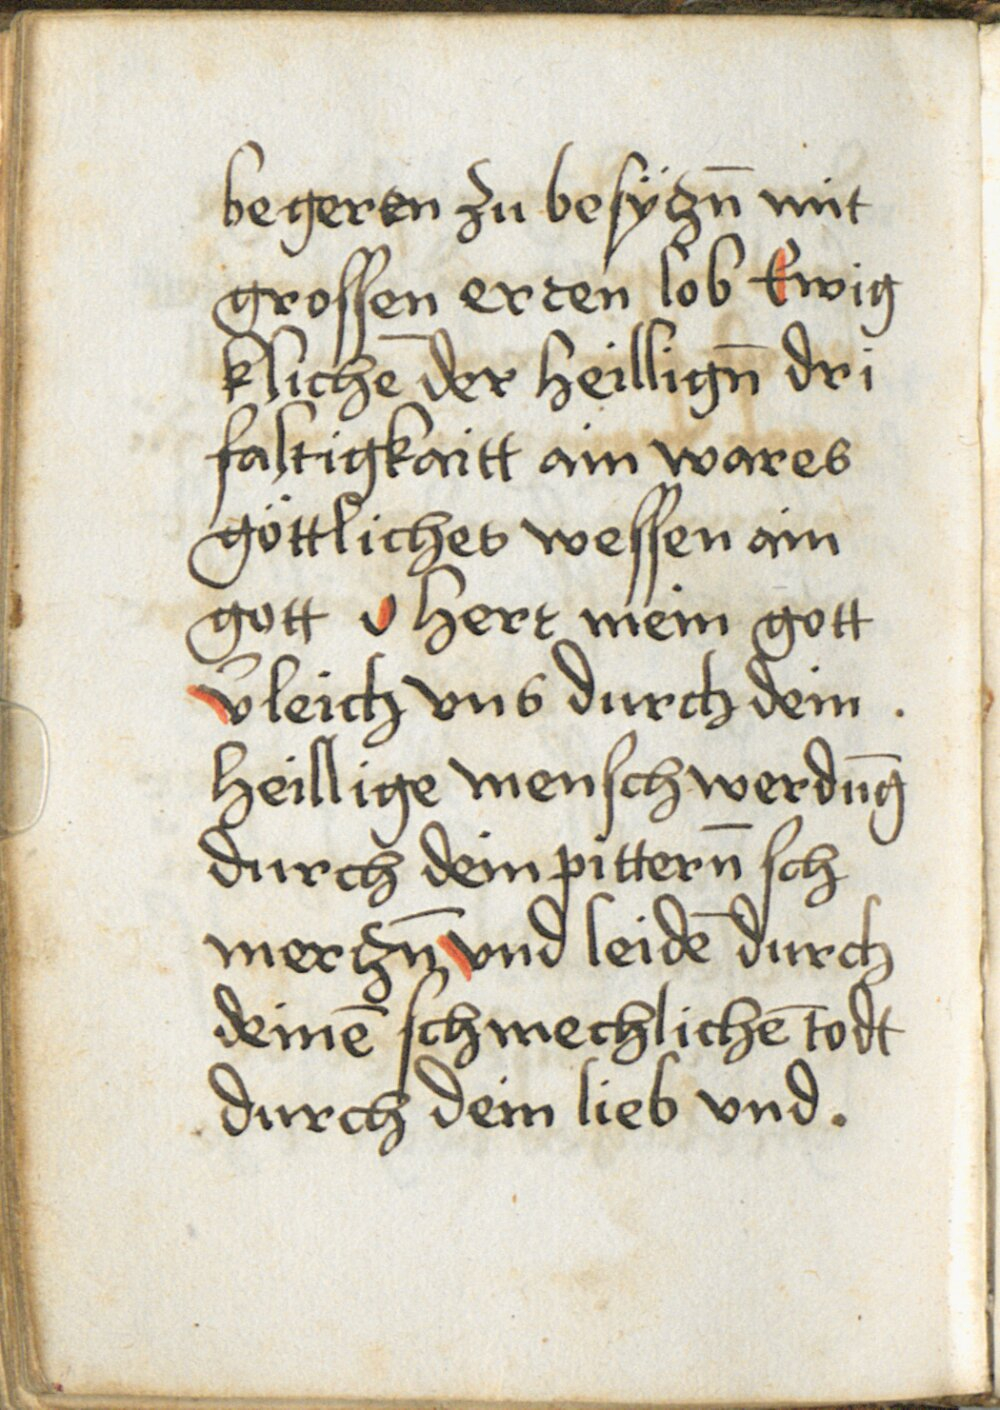 begeren zu besÿtzn̄ mit
grossen erren lob Ewig
klichē der heillign̄ dri
faltigkaitt ain wares
göttliches wessen ain
gott o herr mein gott
v̄leich vns durch dein .
heillige menschwerdūg
durch dein pittern̄ sch
mertzn̄ vnd leidē durch
deinē schmechlichē todt
durch dein lieb vnd .